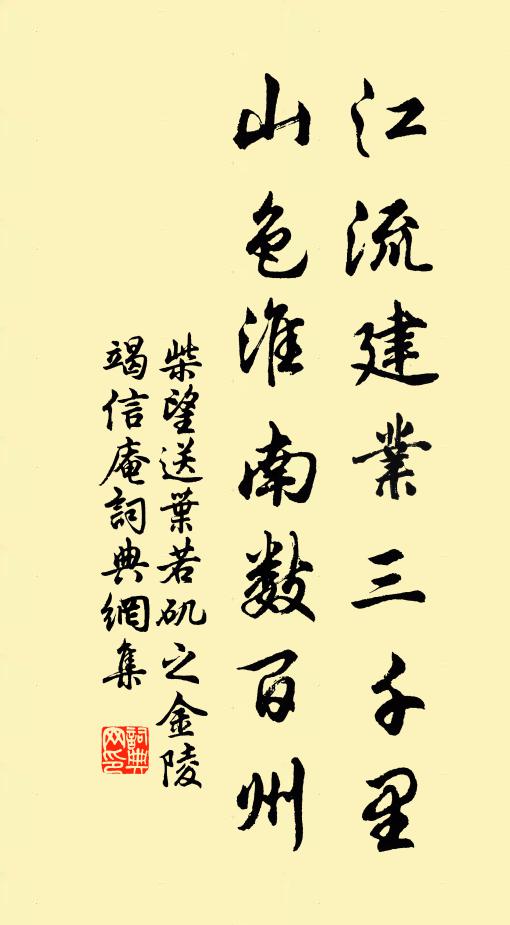 江流建業三千里
山色淮南数百州
柴望送葉若矶之金陵
竭信庵詞典網集
詞典
网印